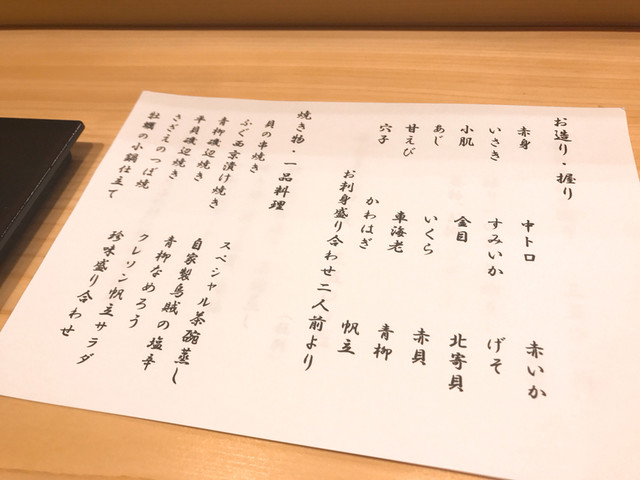 お造り・握り
赤身　中トロ　赤いか
いさき　すみいか　げそ
小肌　金目　北寄貝
あじ　いくら　赤貝
甘えび　車海老　青柳
穴子　かわはぎ　帆立
お刺身盛り合わせ二人前より
焼き物・一品料理
貝の串焼き
ふぐ西京漬け焼き　スペシャル茶碗蒸し
青柳磯辺焼き　自家製烏賊の塩辛
平貝磯辺焼き　青柳なめろう
さざえのつぼ焼　クレソン帆立サラダ
牡蠣の小鍋仕立て　珍味盛り合わせ